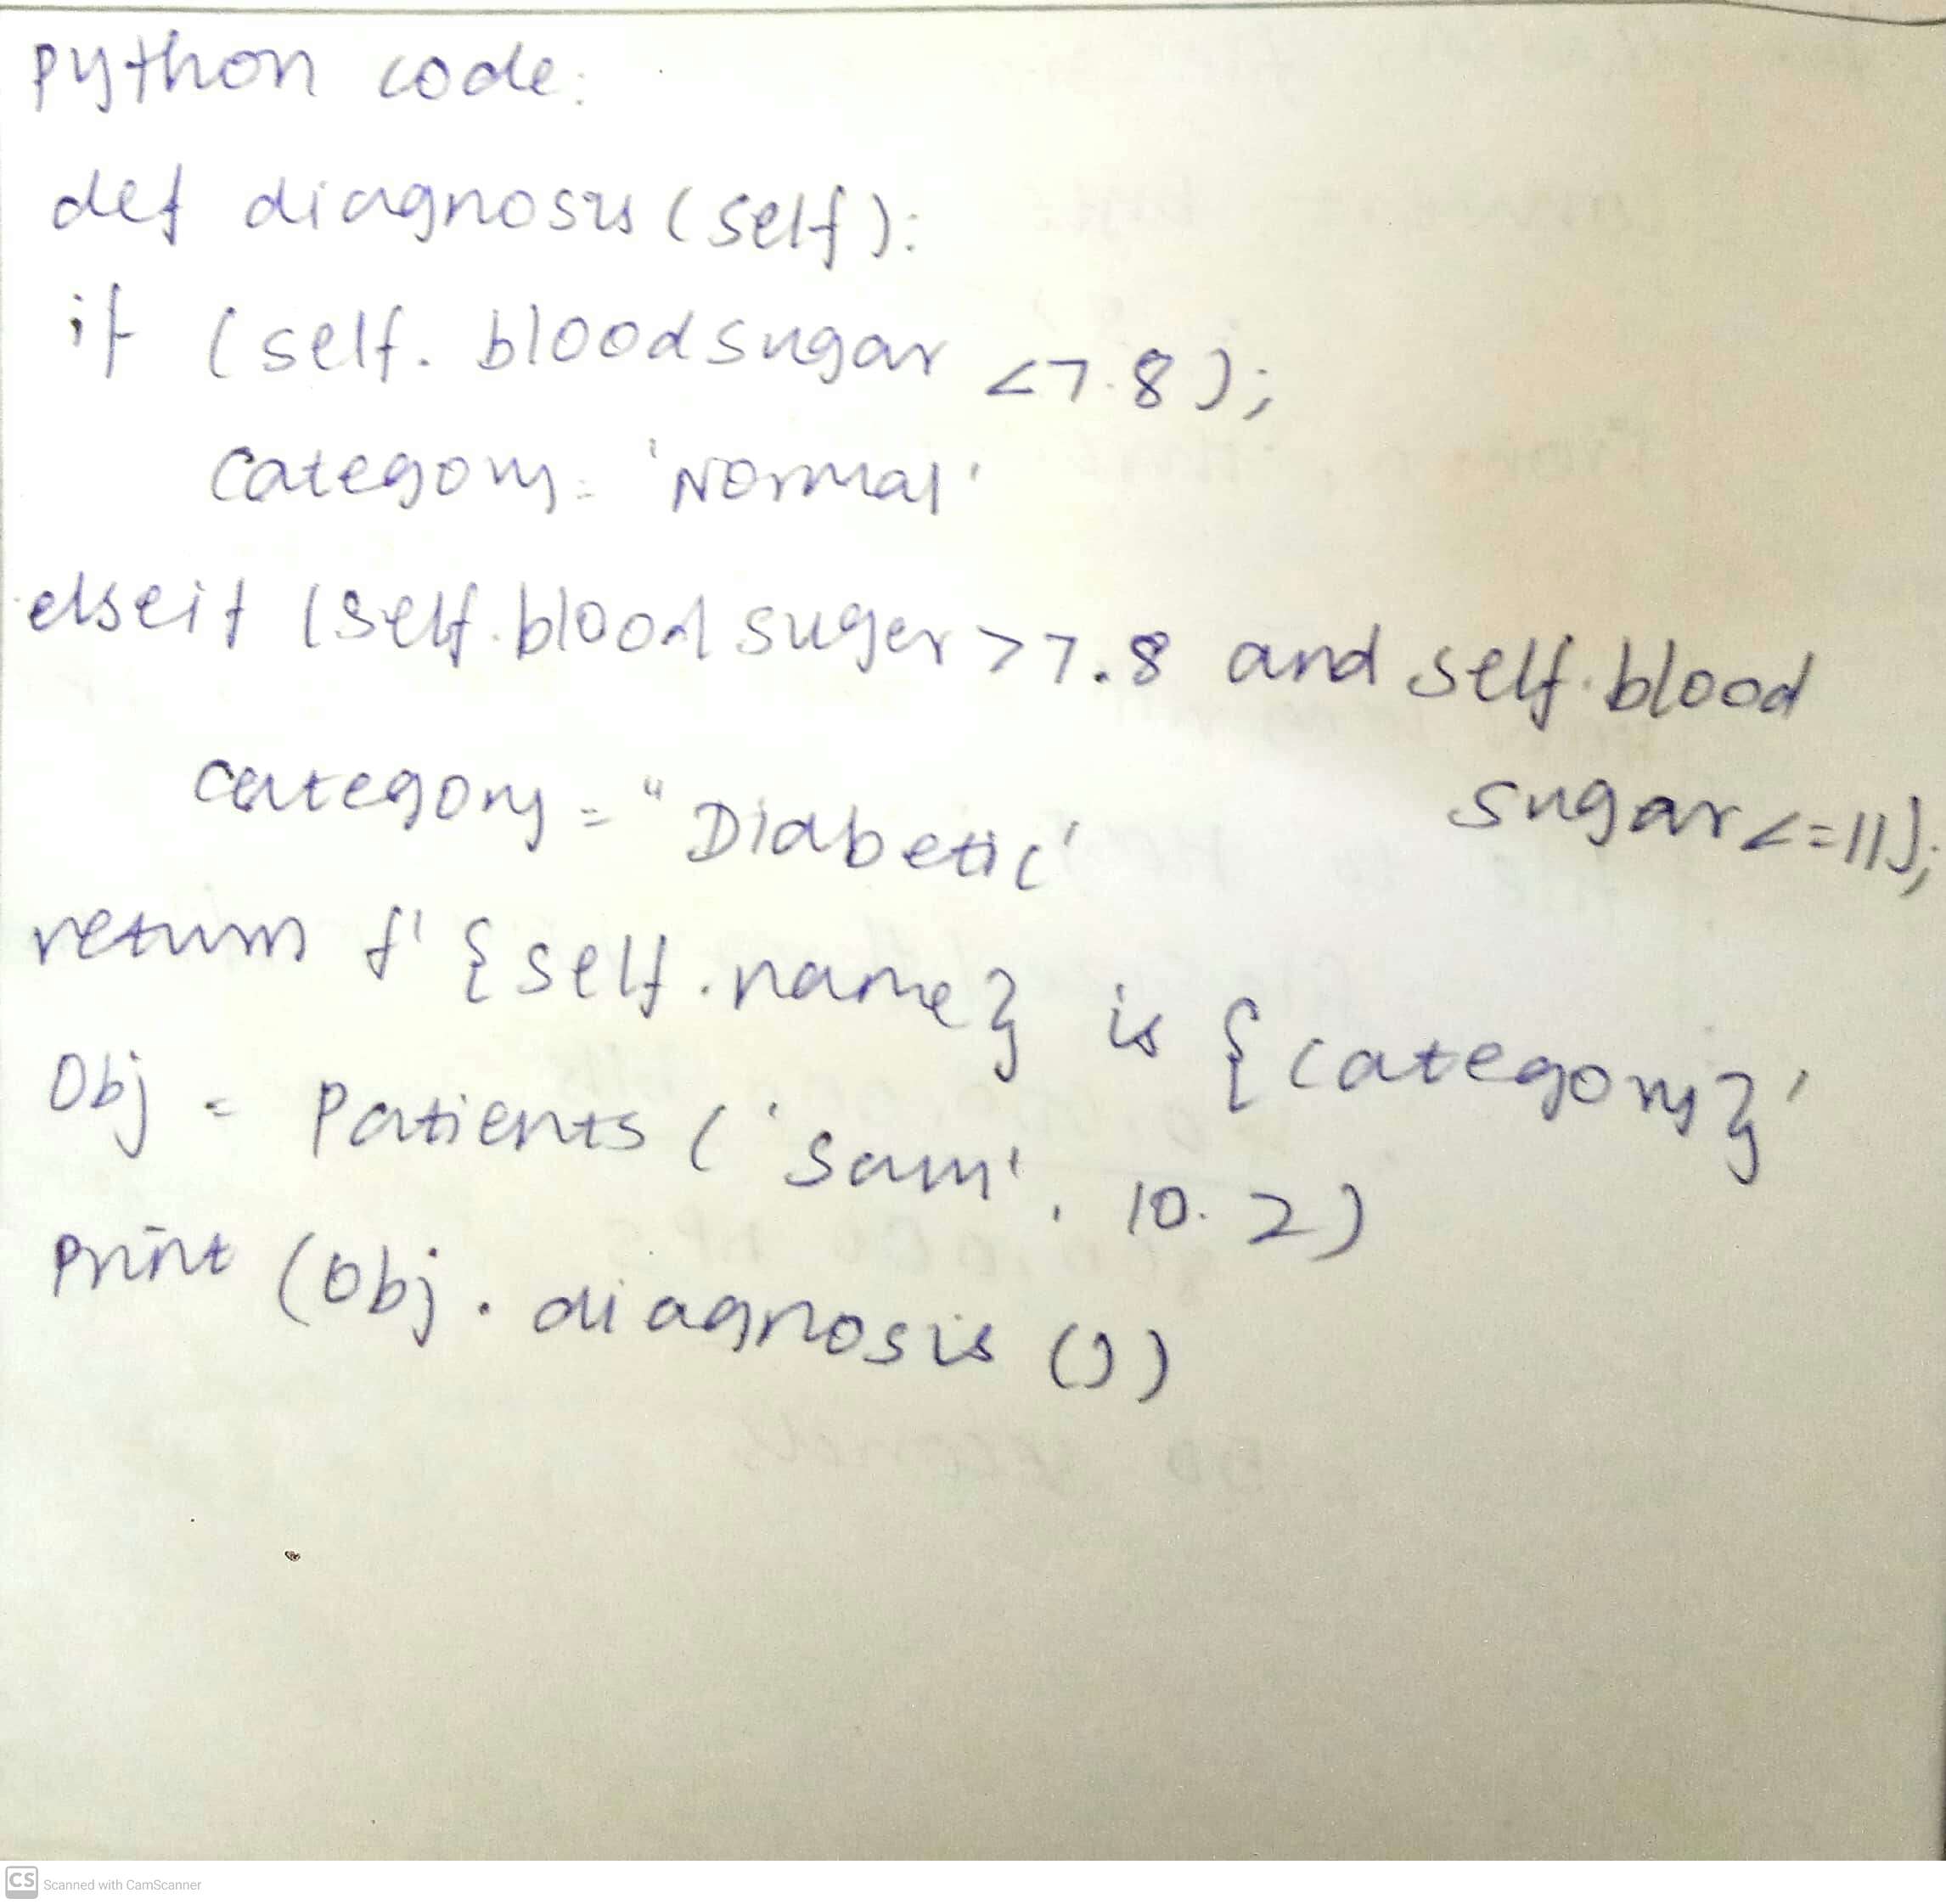 python code:
def diagnosis (self):
if (self. bloodsugar <7.8);
category = 'Normal'
elseif (self.blood suger >7.8 and self.blood
sugar <=11);
category = "Diabetic'
return f' {self.name} is {category}'
Obj = Patients ('Sam', 10.2)
Print (Obj. diagnosis ())
CS Scanned with CamScanner